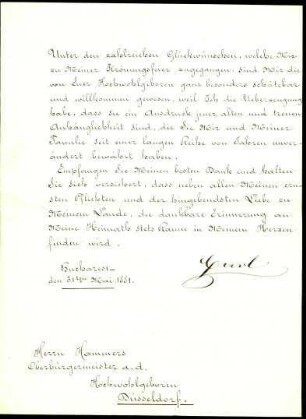 Unter den zahlreichen Glückwünschen, welche Mir
zu Meiner Krönungsfeier zugegangen, sind Mir die
von Euer Hochwohlgeboren ganz besonders schätzbar
und willkommen gewesen, weil Ich die Ueberzeugung
habe, dass sie ein Ausdruck jener alten und treuen
Anhänglichkeit sind, die Sie Mir und Meiner
Familie seit einer langen Reihe von Jahren unver-
ändert bewahrt haben.
Empfangen Sie Meinen besten Dank und halten
Sie sich versichert, dass neben allen Meinen ern-
sten Pflichten und der hingebendsten Liebe zu
Meinem Lande, die dankbare Erinnerung an
Meine Heimath stets Raum in Meinem Herzen
finden wird.
Bucharest
den 31ten Mai 1881.
Carol
Herrn Hammers
Oberbürgermeister a. d.
Hochwohlgeboren
Düsseldorf.